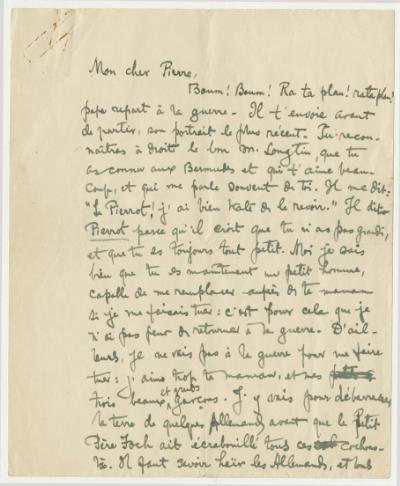 Mon cher Pierre,
Boum! Boum! Ra ta plan! rataplan!
papa repart à la guerre. Il t'envoie avant
de partir, son portrait le plus récent. Tu recon-
naîtras à droit le bon M. Longtin, que tu
as connu aux Bermudes et qui t'aime beau-
coup, et qui me parle souvent de toi. Il me dit:
"Le Pierrot, j'ai bien hâte de le revoir." Il dit
Pierrot parce qu'il croit que tu n'as pas grandi,
et que tu es toujours tout petit. Moi je sais
bien que tu es maintenant un petit homme,
capable de me remplacer auprès de ta maman
si je me faisais tuer: c'est pour cela que je
n'ai pas peur de retourner à la guerre. D'ail-
leurs, je ne vais pas à la guerre pour me faire
tuer: j'aime trop ta maman, et mes
trois beaux et grands garçons. J'y vais pour débarrasser
la terre de quelques Allemands avant que le Petit
Père Foch ait écrabouillé tous ces cochons-
là. Il faut savoir haïr les Allemands, et tous